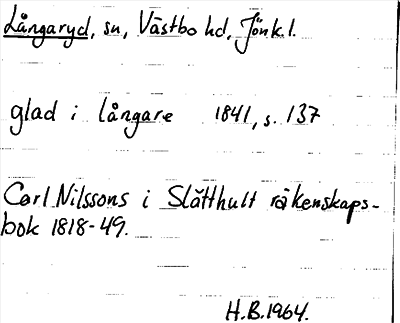 Långaryd, sn, Västbo hd, Jönk.l.
glad i långare 1841, s. 137
Carl Nilssons i Slätthult räkenskaps-
bok 1818-49.
H.B.1964.